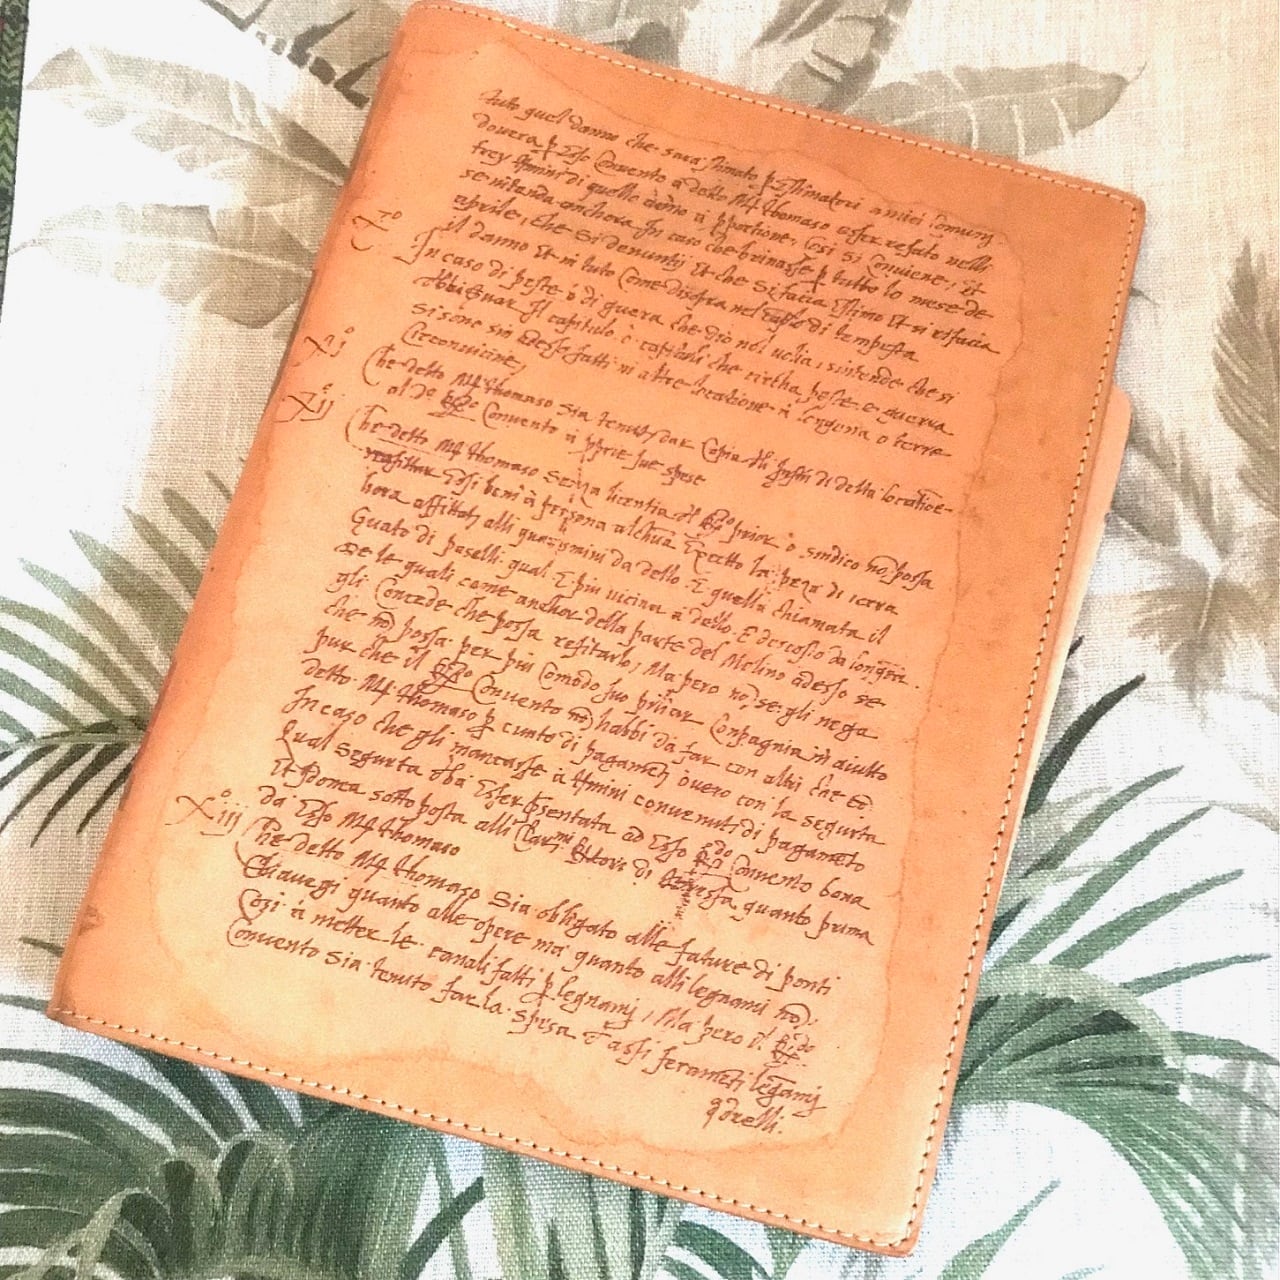 tuto quel danno che sara stimato p Estimatori amici comunj
dovera p Esso Convento a detto Mf thomaso esser refato nelli
frey termini di quello anno a portione, Cosi si Conviene, Et
se intenda anchora In caso che brinasse p tutto lo mese de
aprile, che si denuntij Et che si facia Estimo Et si risfacia
il danno Et in tuto Come disopra nel caplo di tempesta
X.o In caso di peste o di guera che dio nol velia, sintende che si
obbi Servar Il capitulo o capituli che circha peste e guerra
si sono sin adesso fatti in altre locatione a lengona o terre
Circonvicine,
Xj.o Che detto Mf thomaso Sia tenuto dar Copia di detta locatioe
al do Convento a pprie sue spese
Xij.o Che detto Mf thomaso Senza licentia del prior o sindico no possa
reafittar Essi beni à persona alchuna Excetto la peza di terra
hora affittata alli da dello. E quella chiamata il
Guato di paselli qual E piu vicina à dello. E descosto da
De le quali come anchor della parte del Molino adesso se
gli Concede che possa refitarlo, Ma pero no se gli nega
che no possa per piu Comodo suo pliar Conpagnia in aiutto
pur che il Convento no habbi da far con altri che co
detto Mf thomaso p cunto di pagameti overo con la segurta
In caso che gli mancasse à termini convenuti di pagameto
Qual Segurta obia Esser psentata ad Esso Convento bona
Et Idonea sotto posta alli di quanto prima
da Esso Mf thomaso
Xiij.o Che detto Mf thomaso Sia obligato alle fature di ponti
Chiavegi quanto alle opere ma quanto alli legnami no,
Cosi à metter le canali fatti p legnamj, Ma pero il
Convento Sia tenuto far la spesa d assi ferameti legnamj